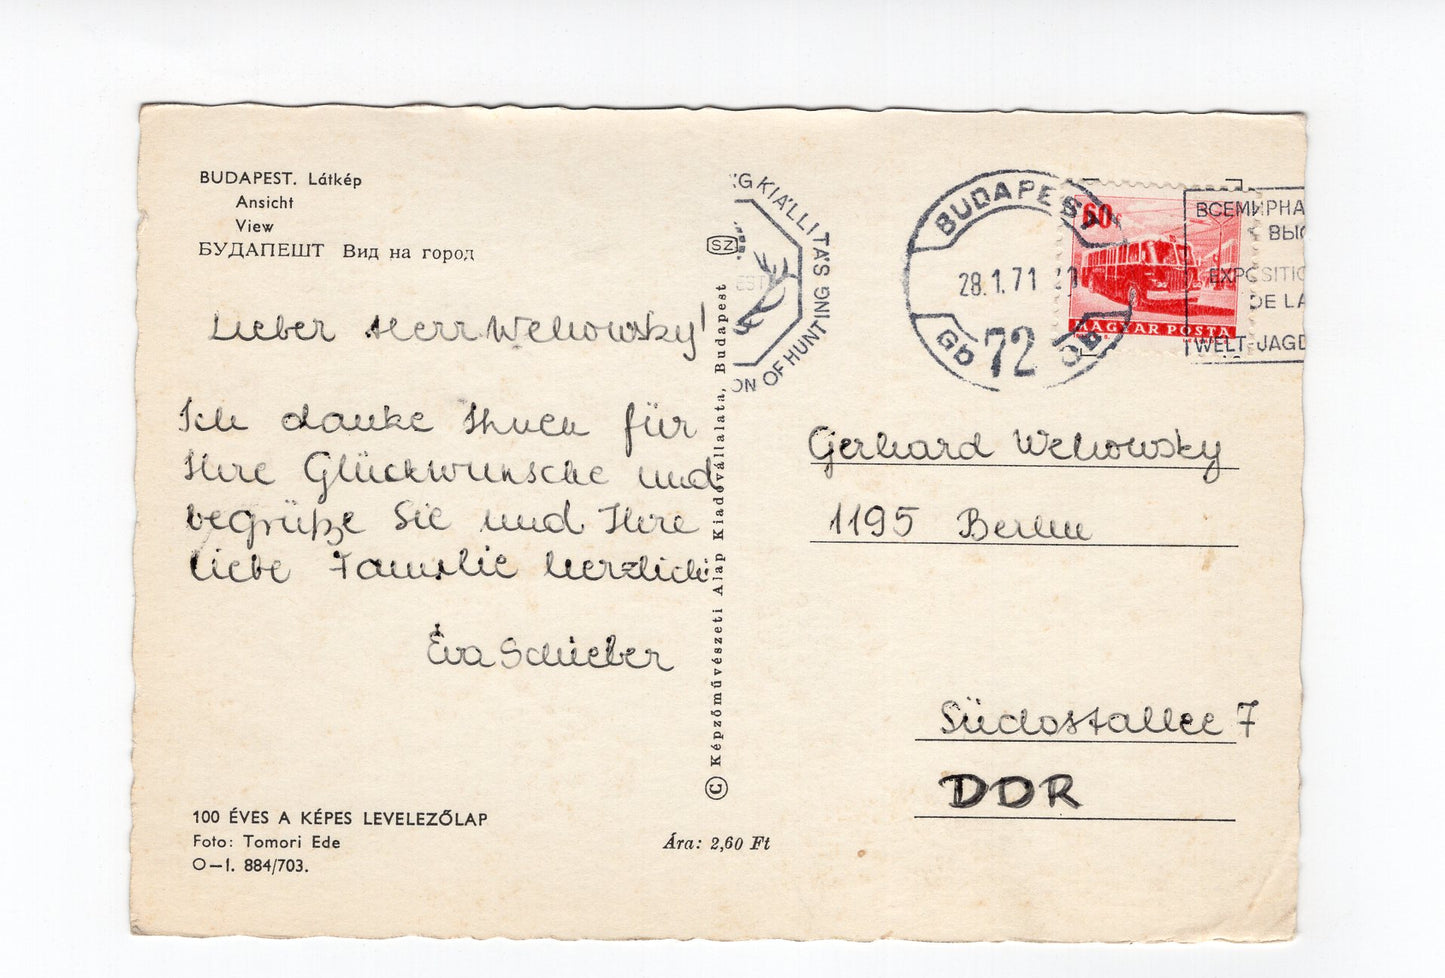 BUDAPEST. Látkép
Ansicht
View
БУДАПЕШТ Вид на город
Lieber Herr Wehowsky!
Ich danke Ihnen für
Ihre Glückwunsche und
begrüße Sie und Ihre
liebe Familie herzlich
Éva Schieber
100 ÉVES A KÉPES LEVELEZŐLAP
Foto: Tomori Ede
O–I. 884/703.
Ára: 2,60 Ft
© Képzőművészeti Alap Kiadóvállalata, Budapest
SZ
KIÁLLITÁS
OF HUNTING
BUDAPEST
28.1.71
72
60f
MAGYAR POSTA
ВСЕМИРНА
ВЫС
EXPOSITIO
DE LA
WELT-JAGD
Gerhard Wehowsky
1195 Berlin
Südostallee 7
DDR